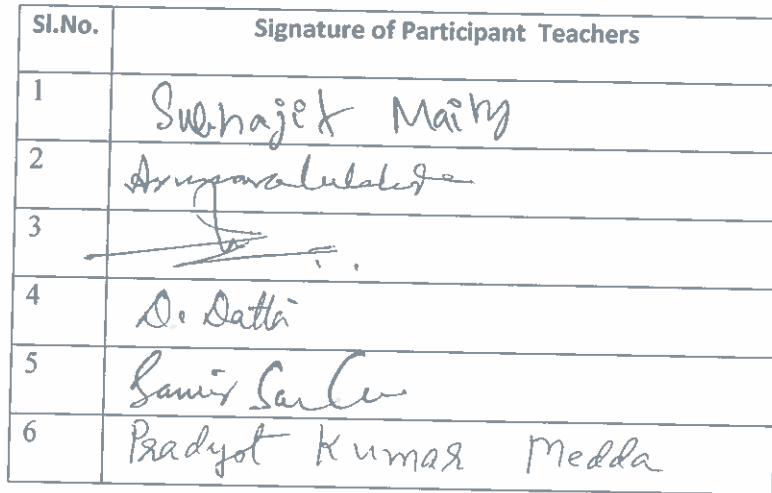 Sl.No. Signature of Participant Teachers
1 Subhajit Maity
2
3
4 D. Datta
5 Samir Sarkar
6 Pradyot Kumar Medda